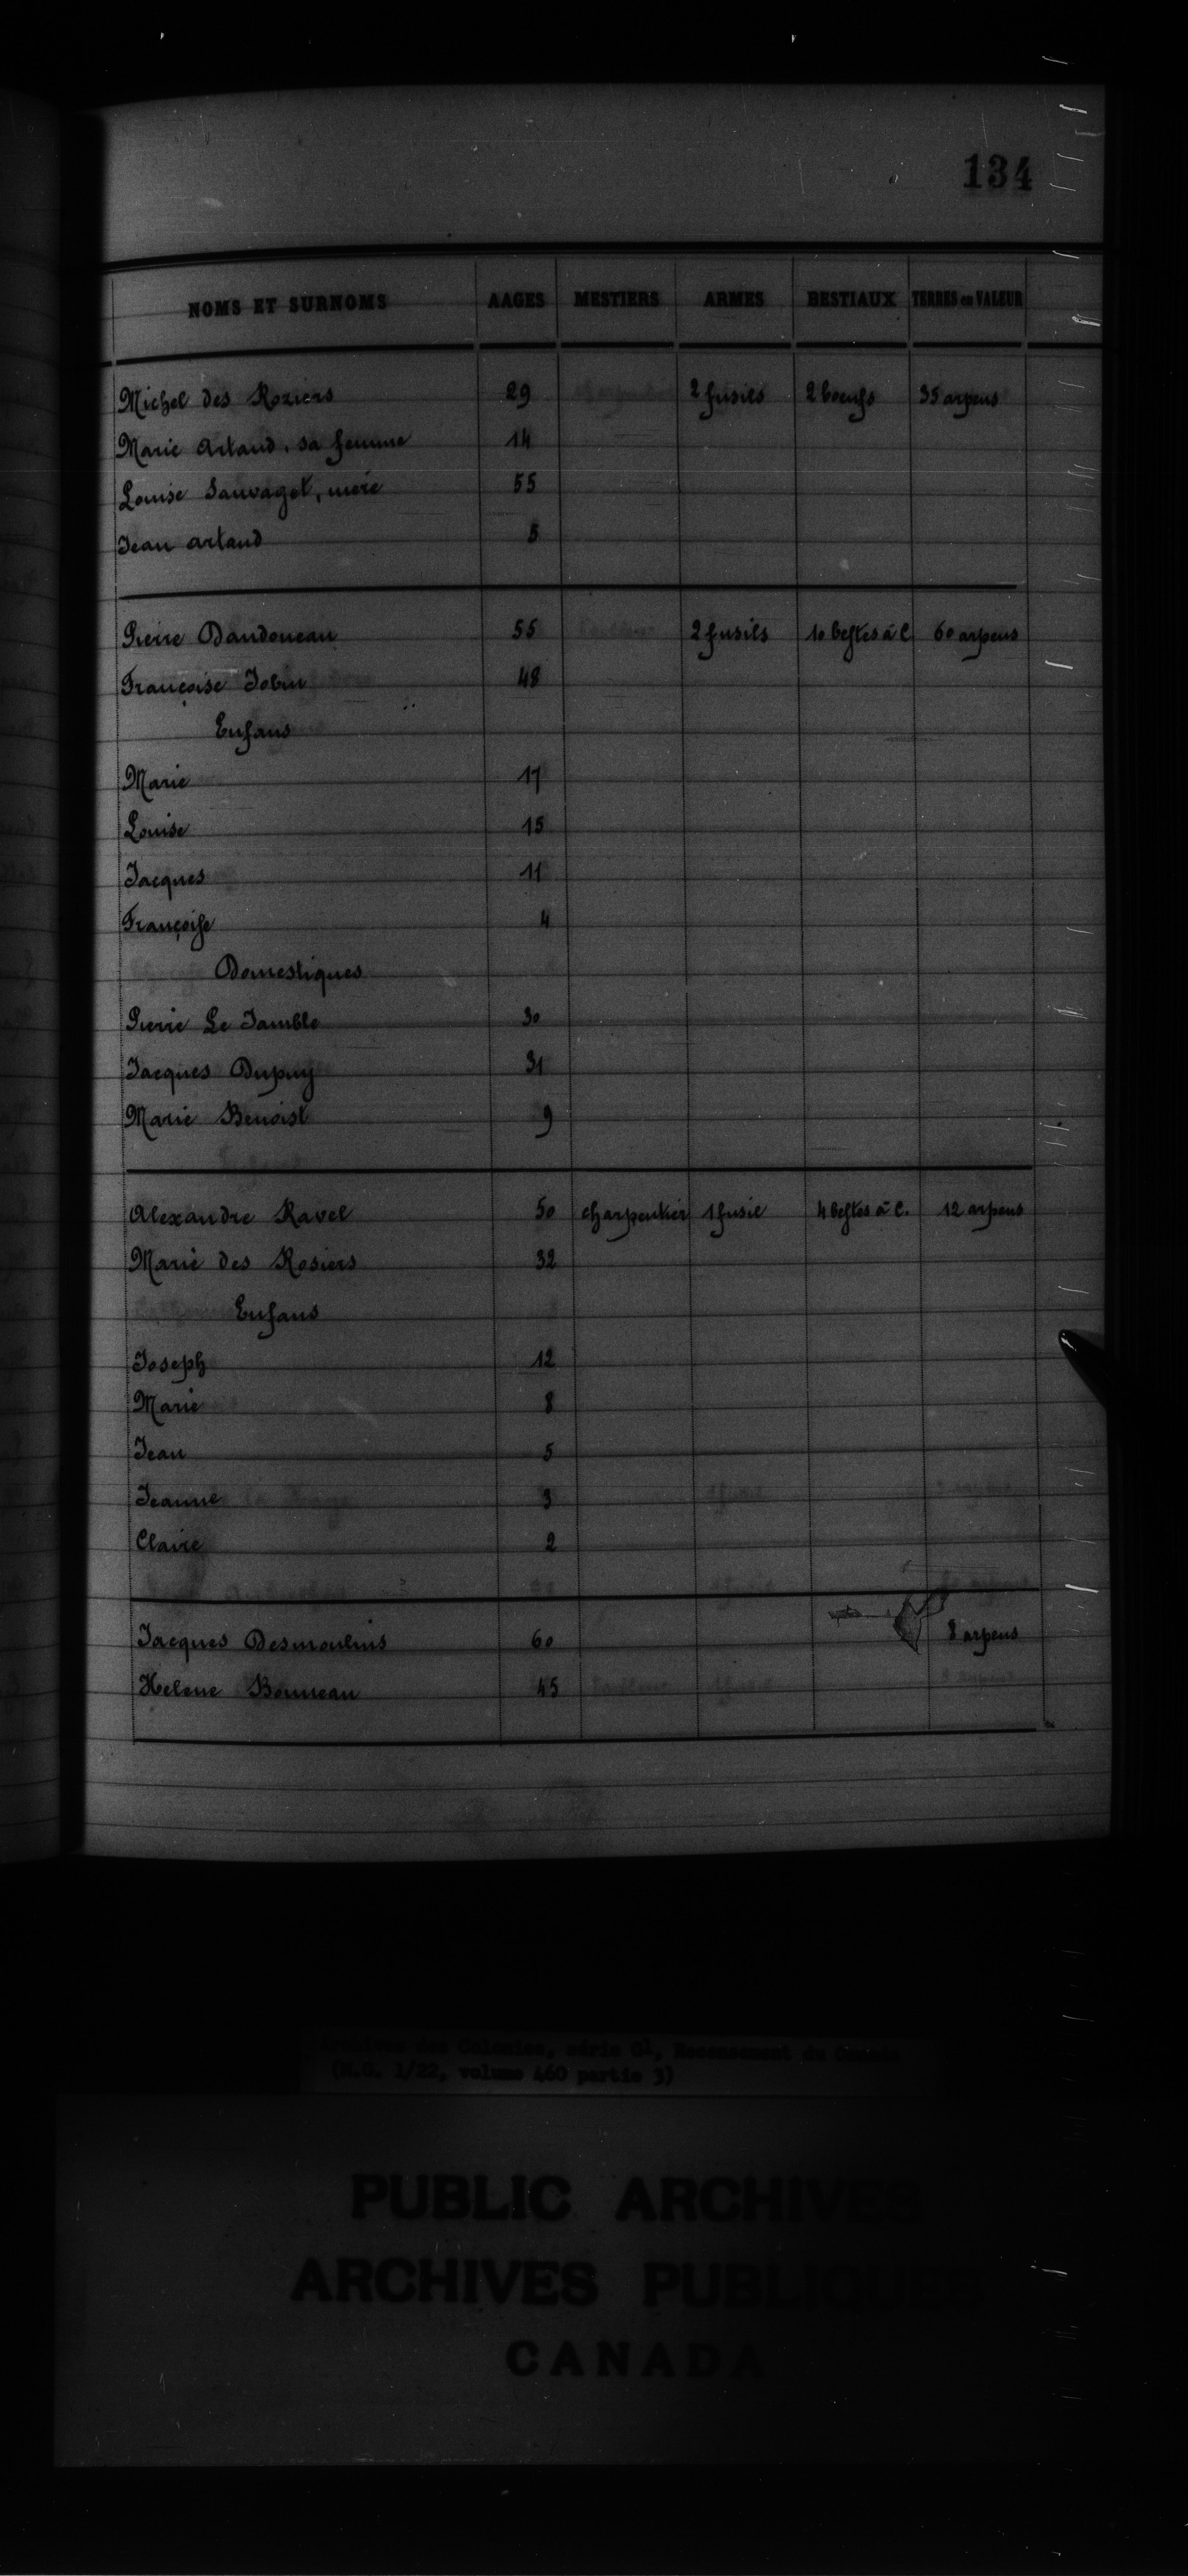 134
NOMS ET SURNOMS AAGES MESTIERS ARMES BESTIAUX TERRES en VALEUR
Michel des Roziers 29 2 fusils 2 boeufs 35 arpens
Marie Artaud, sa femme 14
Louise Sauvaget, mère 55
Jean artaud 5
Pierre Dandoneau 55 2 fusils 10 bestes à C. 60 arpens
Françoise Jobin 48
Enfans
Marie 17
Louise 15
Jacques 11
Françoise 4
Domestiques
Pierre Le Jamble 30
Jacques Dupuy 31
Marie Benoist 9
Alexandre Ravel 50 charpentier 1 fusil 4 bestes à C. 12 arpens
Marie des Rosiers 32
Enfans
Joseph 12
Marie 8
Jean 5
Jeanne 3
Claire 2
Jacques Desmoulins 60 8 arpens
Helene Bonneau 45
Archives des Colonies, série G1, Recensement du Canada
(M.G. 1/22, volume 460 partie 3)
PUBLIC ARCHIVES
ARCHIVES PUBLIQUES
CANADA